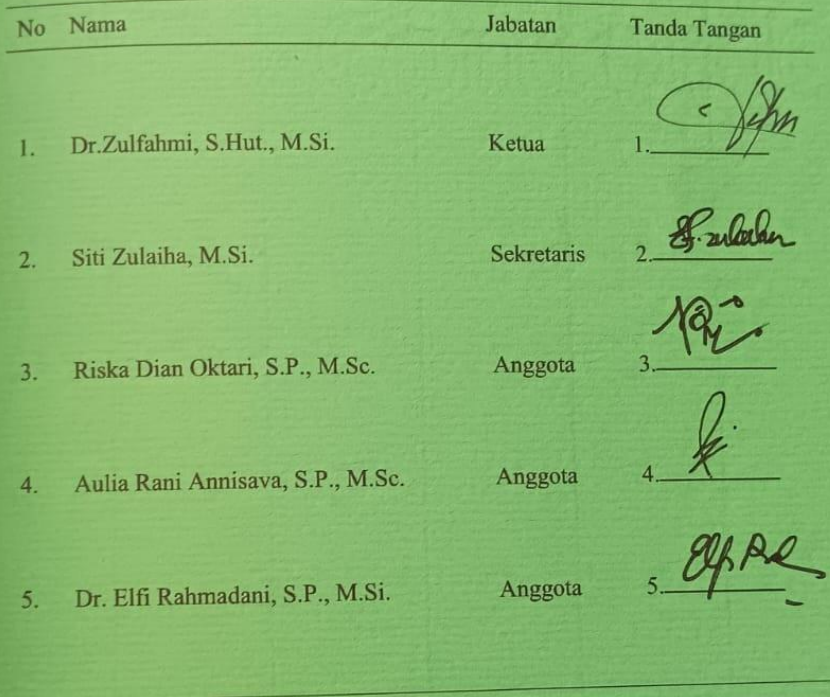 No Nama Jabatan Tanda Tangan
1. Dr.Zulfahmi, S.Hut., M.Si. Ketua 1.
2. Siti Zulaiha, M.Si. Sekretaris 2.
3. Riska Dian Oktari, S.P., M.Sc. Anggota 3.
4. Aulia Rani Annisava, S.P., M.Sc. Anggota 4.
5. Dr. Elfi Rahmadani, S.P., M.Si. Anggota 5.